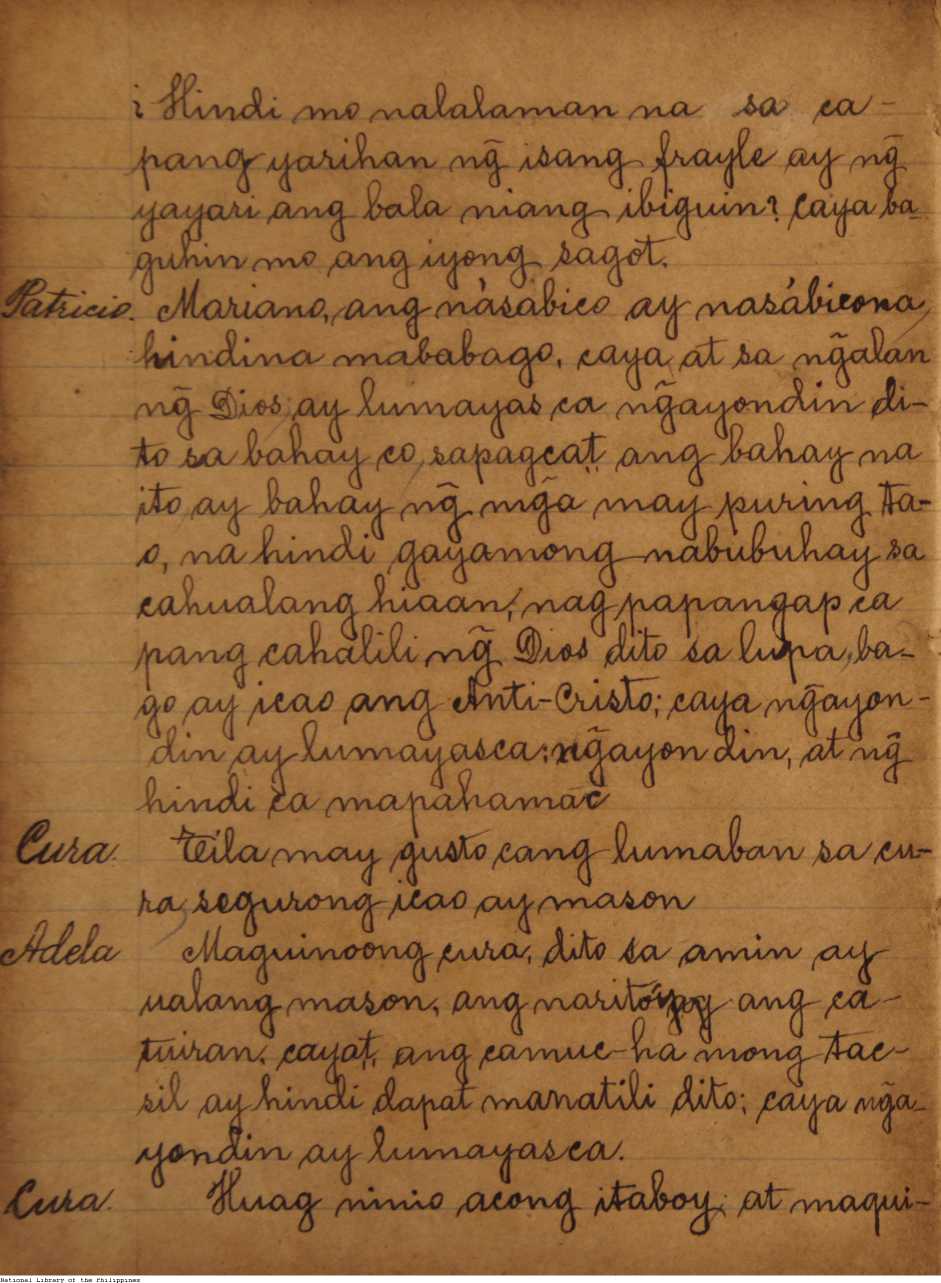 ¿Hindi mo nalalaman na sa ca-
pang yarihan ng̃ isang frayle ay ng̃
yayari ang bala niang ibiguin? caya ba-
guhin mo ang iyong sagot.
Patricio. Mariano, ang násábico ay nasábicona,
hindina mababago, caya at sa ng̃alan
ng̃ Dios ay lumayas ca ng̃ayondin di-
to sa bahay co, sapagcat ang bahay na
ito ay bahay ng̃ mg̃a may puring ta-
o, na hindi gayamong nabubuhay sa
cahualang hiaan, nag papangap ca
pang cahalili ng̃ Dios dito sa lupa, ba-
go ay icao ang Anti-Cristo; caya ng̃ayon-
din ay lumayasca; ng̃ayon din, at ng̃
hindi ca mapahamac
Cura. Tila may gusto cang lumaban sa cu-
ra, segurong icao ay mason
Adela Maguinoong cura, dito sa amin ay
ualang mason, ang narito'y ang ca-
tuiran, cayat, ang camuc-ha mong tac-
sil ay hindi dapat manatili dito; caya ng̃a-
yondin ay lumayasca.
Cura. Huag ninio acong itaboy, at maqui-
National Library of the Philippines